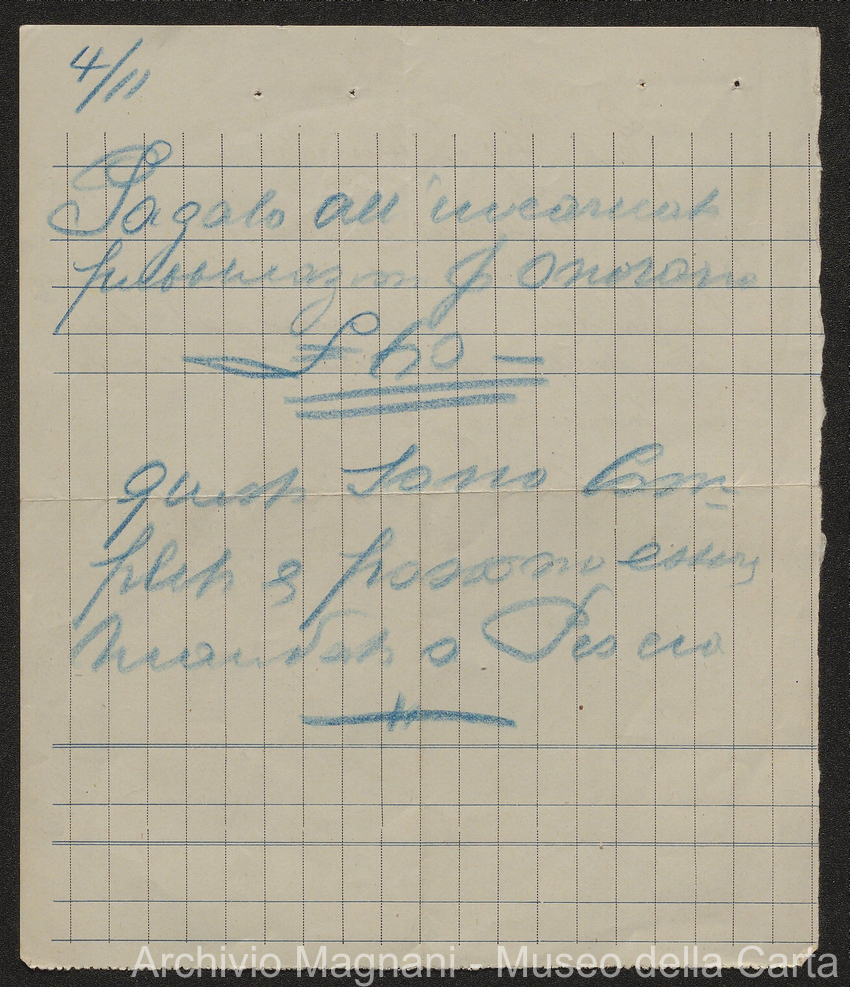 4/11
Pagato all'incaricato
pubblicazioni Onorario
£ 60 –
questi sono Com-
pleti e possono essere
mandati a Pescia
Archivio Magnani - Museo della Carta